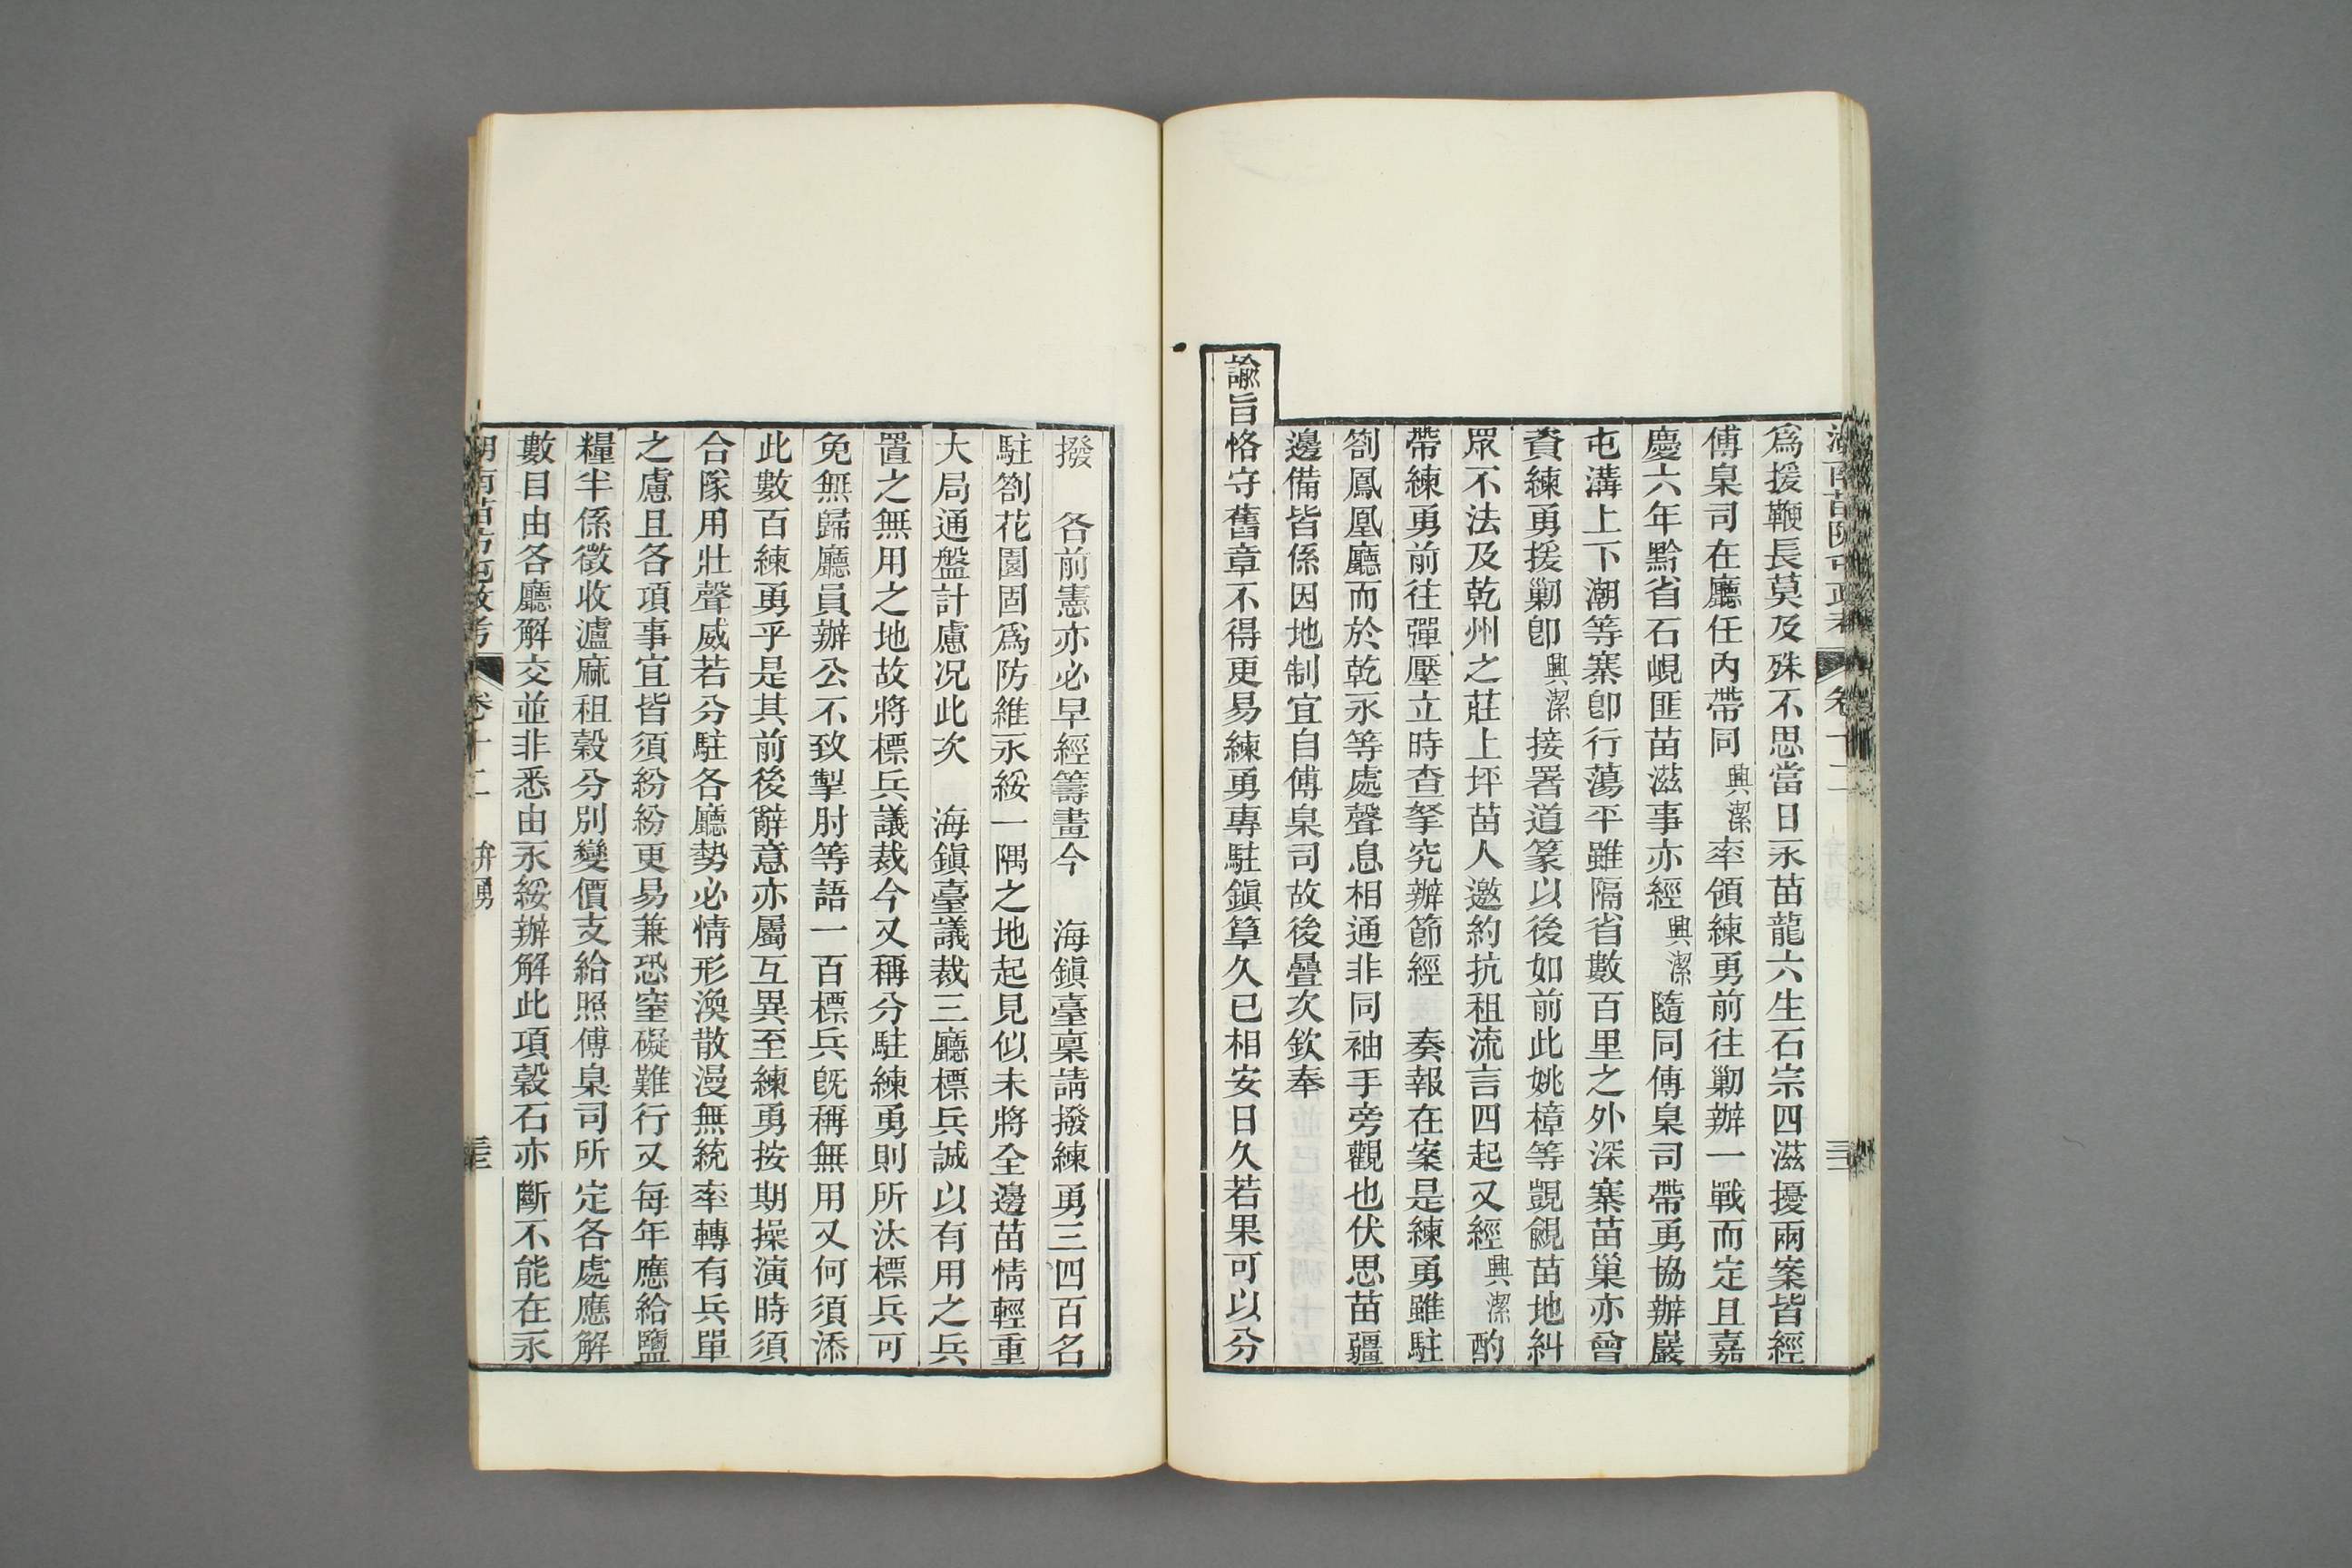 湖南苗防屯政考 卷十二
為援鞭長莫及殊不思當日永苗龍六生石宗四滋擾兩案皆經
傅臬司在廳任內帶同興潔率領練勇前往剿辦一戰而定且嘉
慶六年黔省石峴匪苗滋事亦經興潔隨同傅臬司帶勇協辦巖
屯溝上下潮等寨卽行蕩平雖隔省數百里之外深寨苗巢亦曾
資練勇援剿卽興潔接署道篆以後如前此姚樟等覬覦苗地糾
眾不法及乾州之莊上坪苗人邀約抗租流言四起又經興潔酌
帶練勇前往彈壓立時查拏究辦節經 奏報在案是練勇雖駐
劄鳳凰廳而於乾永等處聲息相通非同袖手旁觀也伏思苗疆
邊備皆係因地制宜自傅臬司故後曡次欽奉
諭旨恪守舊章不得更易練勇專駐鎮筸久已相安日久若果可以分
撥 各前憲亦必早經籌畫今 海鎮臺稟請撥練勇三四百名
駐劄花園固為防維永綏一隅之地起見似未將全邊苗情輕重
大局通盤計慮况此次 海鎮臺議裁三廳標兵誠以有用之兵
置之無用之地故將標兵議裁今又稱分駐練勇則所汰標兵可
免無歸廳員辦公不致掣肘等語一百標兵旣稱無用又何須添
此數百練勇乎是其前後辭意亦屬互異至練勇按期操演時須
合隊用壯聲威若分駐各廳勢必情形渙散漫無統率轉有兵單
之慮且各項事宜皆須紛紛更易兼恐窒礙難行又每年應給鹽
糧半係徵收瀘麻租穀分別變價支給照傅臬司所定各處應解
數目由各廳解交並非悉由永綏辦解此項穀石亦斷不能在永
湖南苗防屯政考 卷十二 弁勇 三三